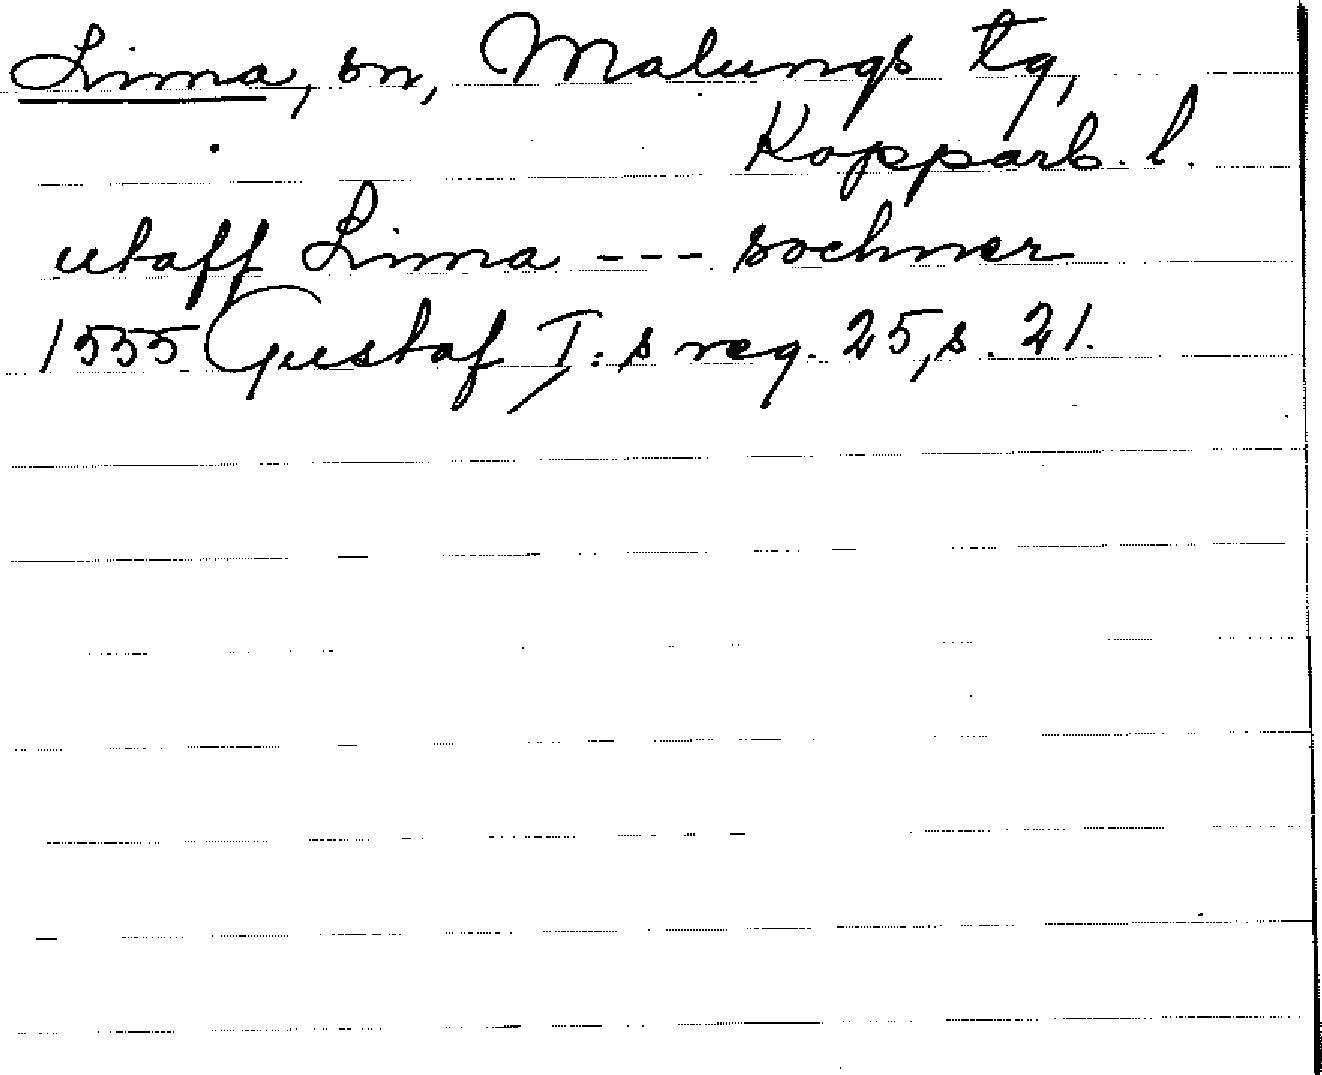 Lima, sn, Malungs tg,
Kopparb. l.
utaff Lima --- sochner
1555 Gustaf I:s reg. 25, s. 21.